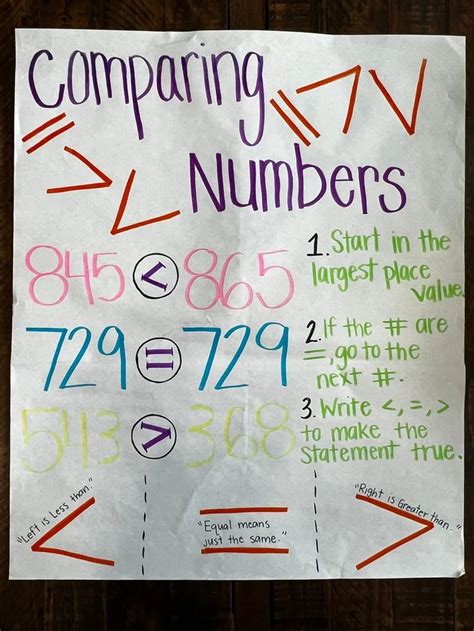 Comparing
Numbers
845 < 865
729 = 729
543 > 368
1. Start in the
largest place
value.
2. If the # are
=, go to the
next #.
3. Write <, =, >
to make the
statement true.
"Left is Less than."
<
"Equal means
just the same."
"Right is Greater than."
>